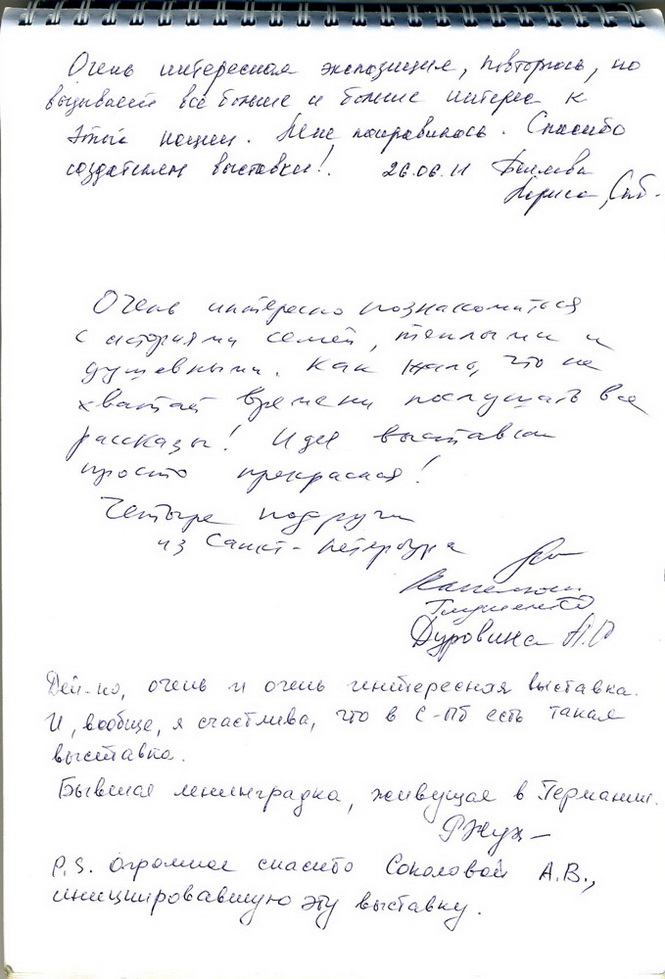 Очень интересная экспозиция, повторюсь, но
вызывает всё больше и больше интерес к
этой нации. Мне понравилось. Спасибо
создателям выставки! 26.06.11
Лариса, Спб.
Очень интересно познакомиться
с историями семей, теплыми и
душевными. Как жаль, что не
хватает времени послушать все
рассказы! Идея выставки
просто прекрасная!
Четыре подруги
из Санкт-Петербурга
Дуровина А.
Дей-но, очень и очень интересная выставка.
И, вообще, я счастлива, что в С-Пб есть такая
выставка.
Бывшая ленинградка, живущая в Германии.
P.S. Огромное спасибо Соколовой А.В.,
инициировавшую эту выставку.